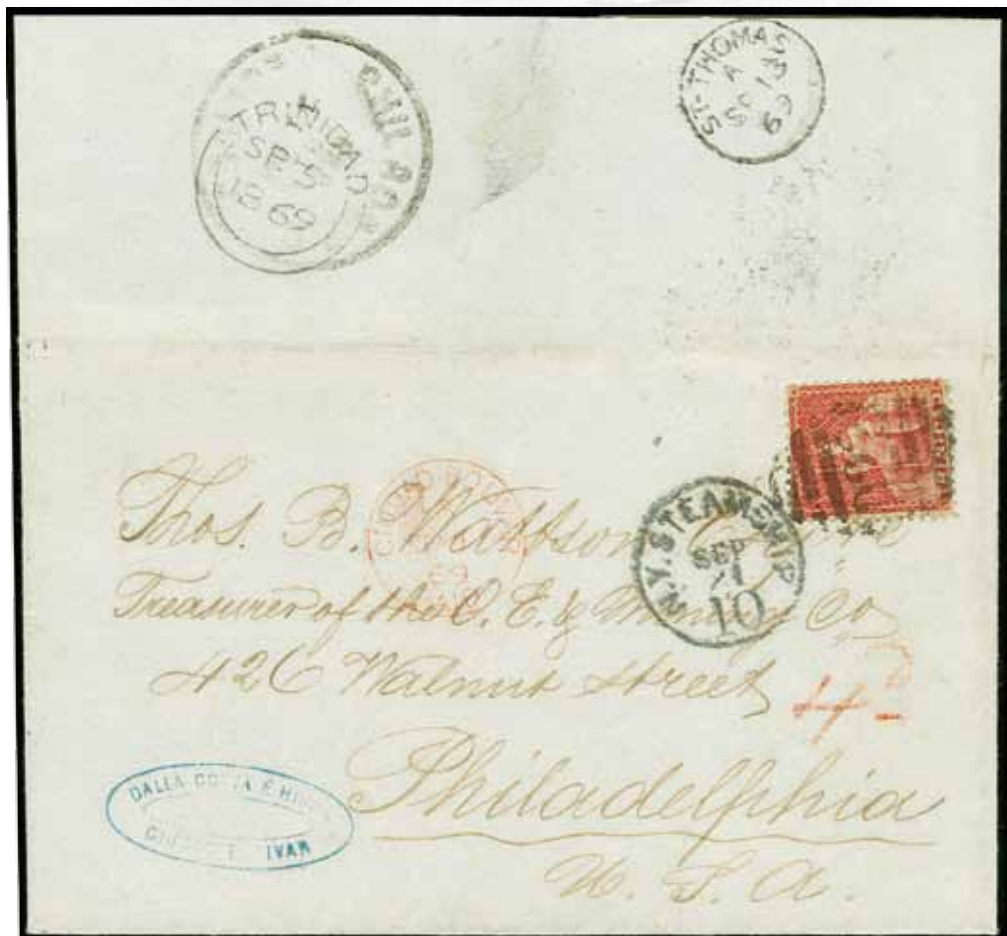 TRINIDAD
SP 5
1869
ST. THOMAS
A
69
N.Y. STEAMSHIP
SEP
21
10
Thos. B. Wattson
Treasurer of the O. E. & Mining Co
426 Walnut Street
4D
Philadelphia
U. S. A.
DALLA COSTA É HIJOS
CIUDAD BOLIVAR